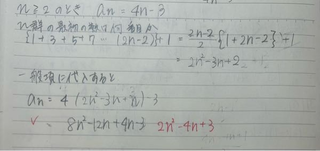 n≧2のとき an = 4n-3
n群の最初の数は何番目か
{1+3+5+7…(2n-2)}+1 = 2n-2/2 {1+2n-2}+1
= 2n²-3n+2
一般項に代入すると
an = 4(2n²-3n+2)-3
8n²-12n+4n-3 2n²-4n+3